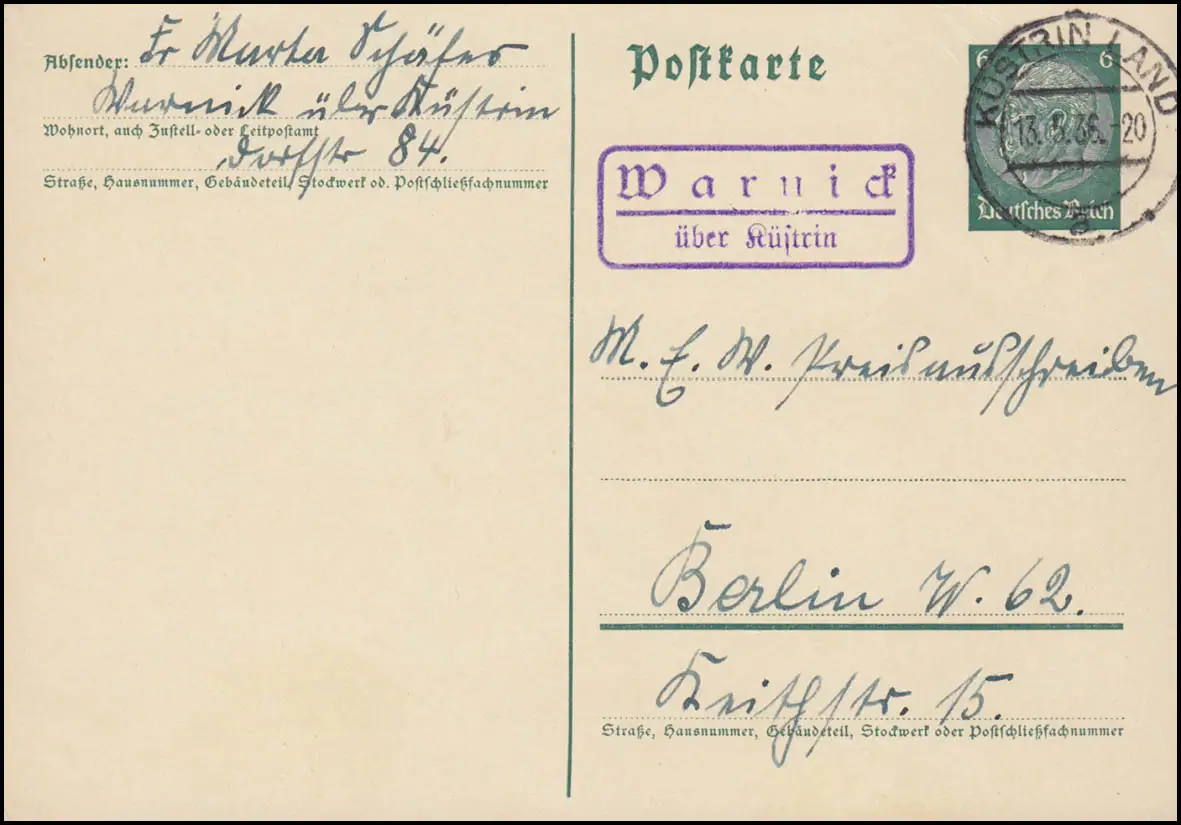 Absender: Fr Marta Schäfer
Warnick über Küstrin
Wohnort, auch Zustell- oder Leitpostamt
Dorfstr 84.
Straße, Hausnummer, Gebäudeteil, Stockwerk od. Postschließfachnummer
Postkarte
6 6
Deutsches Reich
KÜSTRIN LAND
36.-20
a
Warnick
über Küstrin
M. E. W. Preisausschreiben
Berlin W. 62.
Keithstr. 15.
Straße, Hausnummer, Gebäudeteil, Stockwerk oder Postschließfachnummer